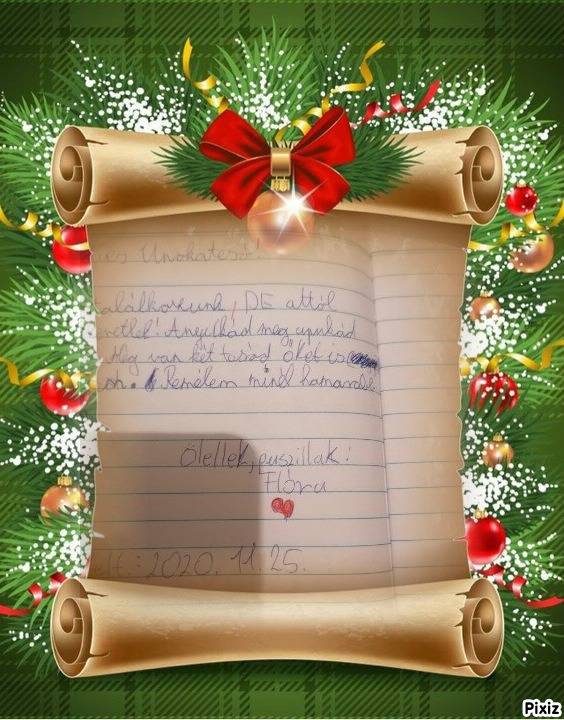 es Unokatesó!
találkozunk, DE attól
Anyukád meg apukád
Még van két tesód őket is
. Remélem minél hamarabb
Ölellek, puszillak:
Flóra
elt.: 2020. 11. 25.
Pixiz